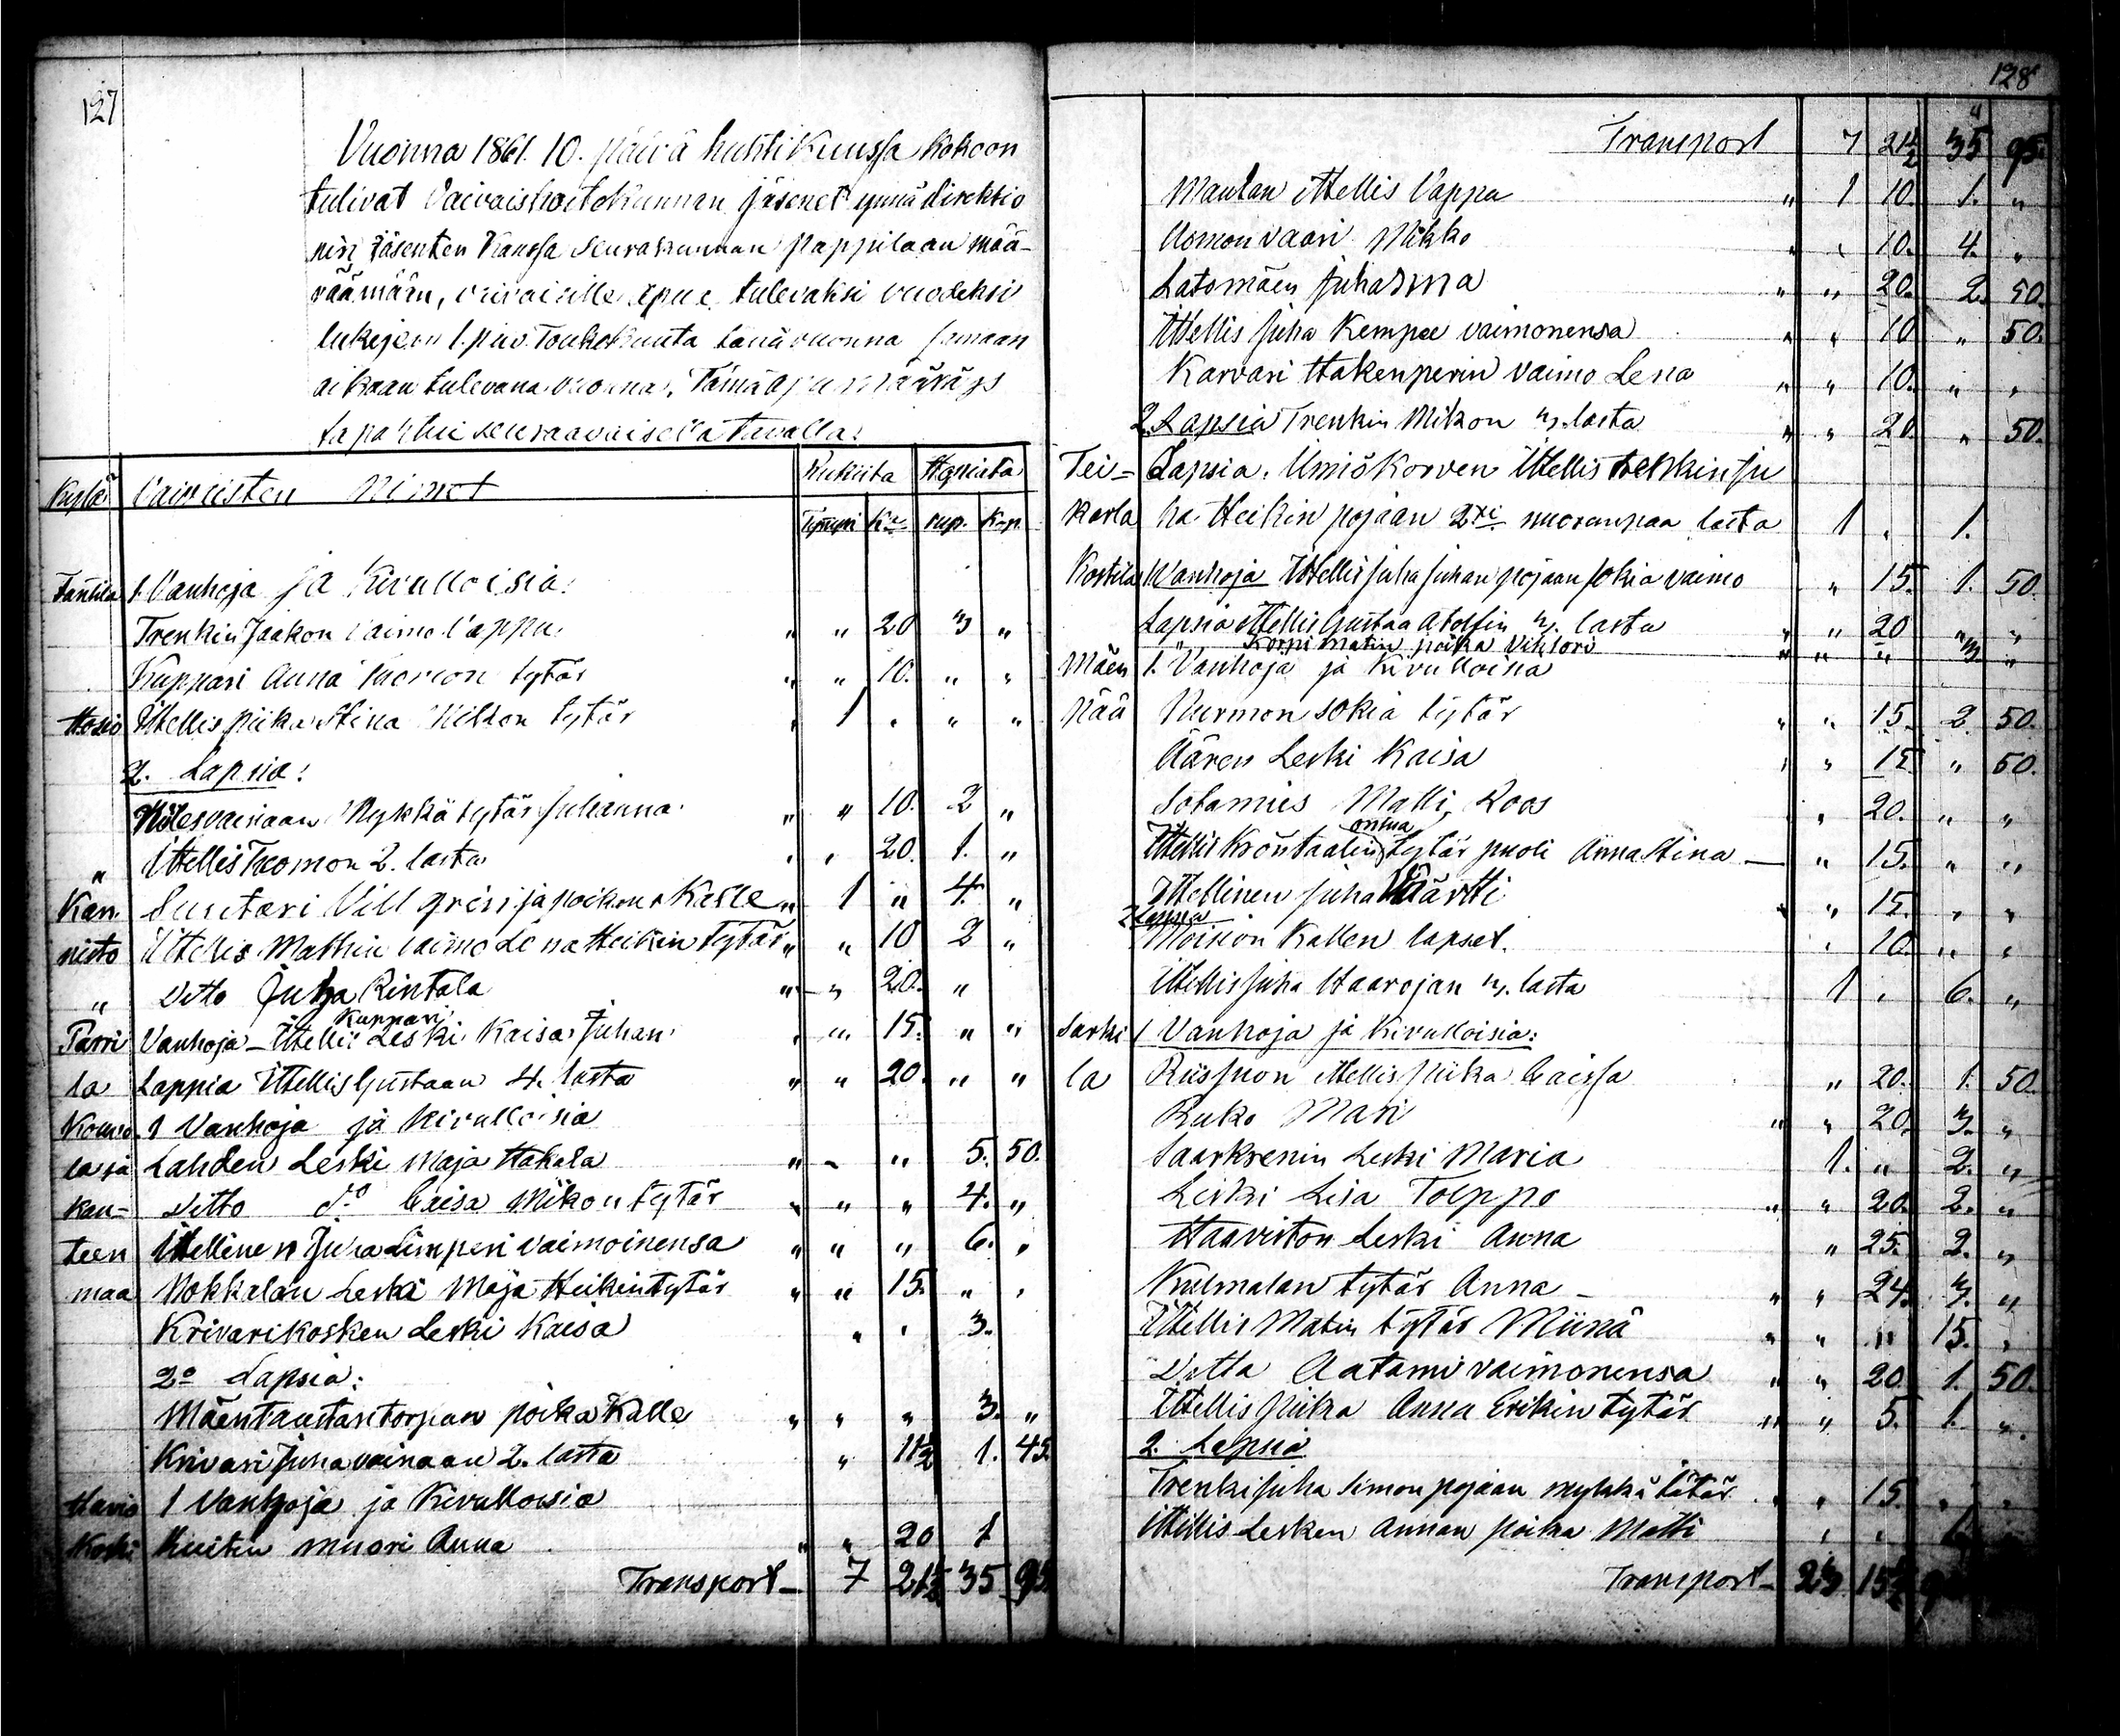 127
Vuonna 1861. 10. päivä huhtikuussa kokoon
tulivat Vaivaishoitokunnan jäsenet ynnä direktio
nin jäsenten kanssa seurakunnan pappilaan mää-
räämään, vaivaisille apua tulevaksi vuodeksi
lukijeun 1. päiv. Toukokuuta tänä vuonna samaan
aikaan tulevana vuonna. Tämä apu määräys
tapahtui seuraavaisella tavalla:
Kylä Vaivaisten Nimet Rukiita Rahaa
Tynnyri K:a rup. Kop.
Tanila 1. Vanhoja ja Kivulloisia:
Trenkin Jaakon Vaimo Vappu " " 20 3 "
Kuppari Anna Tuomon tytär " " 10. " "
Hosio Ittellis piika Stina Mikon tytär " 1 " " "
2. Lapsia:
Niilesvainaan Mykkä tytär Juhanna " " 10. 2 "
" Ittellis Tuomon 2. lasta " " 20. 1. "
Kan- Suutari Villgren ja poikons Kalle " 1 " 4. "
nisto Ittellis Mathin vaimo Lena Heikin tytär " " 10 2 "
" Ditto Juha Rintala " " 20. "
Kuppari
Parri Vanhoja - Ittellis Leski Kaisa Juhan " " 15. " "
la Lapsia Ittellis Gustaan 4. lasta " " 20. " "
1 Vanhoja ja Kivulloisia
la ja Lahden Leski Maja Hakala " - " 5. 50.
Kan- Ditto d:o Caisa Mikon tytär " " " 4. "
teen Ittellinen Juha Limperi vaimoinensa " " " 6. "
maa Nokkalan Leski Maja Heikintytär " " 15. " "
Krivarikosken Leski Kaisa " " 3.
2o Lapsia:
Mäentaustantorpan poika Kalle " " " 3. "
Krivari Juha vainaan 2. lasta " 11½ 1. 45.
Havio 1 Vanhoja ja Kivulloisia
Koski Kuitin muori Anna " " 20 1
Transport - 7 21½ 35 95.
128
Transport 7 21½ 35 95.
Maulan Ittellis Vappu " 1 10. 1. "
Uomonvaari Mikko " " 10. 4. "
Latomäen Juha " " 20. 2. 50.
Ittellis Juha Kempee vaimonensa " " 10 " 50.
Karvari Hakenperin vaimo Lena " " 10. " "
2 Lapsia Trenkin Mikon 3. lasta " " 20 " 50.
Tei- Lapsia. Umiökorven Ittellis trenkin Ju
karla ha Heikin pojaan 2xi nuorenpaa lasta 1 " 1.
Kostila 1 Vanhoja Ittellis Juha Juhan pojaan sokia vaimo " 15. 1. 50.
Lapsia Ittellis Gustaa Adolfin 3. lasta " " 20 " "
Korpi Matin poika Vihtori " " " 3 "
Mäen 1. Vanhoja ja Kivulloisia
pää Nurmon sokia tytär " " 15. 2 50.
Äären Leski Kaisa " " 15 " 50.
Sotamies Matti Roos " 20. " "
Ittellis Kröntaalin tytär puoli Anna Stina - " 15. " "
Ittellinen Juha Väärtti " " 15. " "
2 Lapsia
Moision Kallen lapset. " 10. " "
Ittellis Juha Haarojan 3. lasta 1 " 6. "
Sarki 1 Vanhoja ja Kivulloisia:
la Riispuon Ittellis piika Caissa " 20. 1. 50.
Ruko Mari " " 20. 3. "
Saarkrenin Leski Maria 1. " 2. "
Leski Lisa Tolppo " " 20. 2. "
Haaviston Leski Anna " 25. 2. "
Kulmalan tytär Anna - " " 24. 3. "
Ittellis Matin tytär Miina " " " 15. "
Ditto Aatami vaimonensa " " 20 1. 50.
Ittellis piika Anna Erikin tytär " " 5. 1. "
2. Lapsia
Trenki Juha Simon pojaan mykkä tytär " " 15 " "
Ittellis Lesken Annan poika Matti " "
Transport - 23 15½